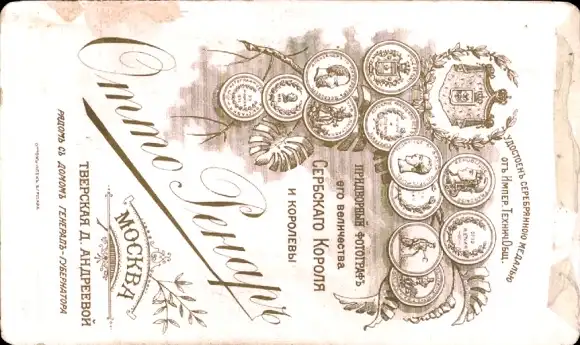 УДОСТОЕНЪ СЕРЕБРЯННОЮ МЕДАЛЬЮ
ОТЪ ИМПЕР. ТЕХНИЧ. ОБЩ.
ПРИДВОРНЫЙ ФОТОГРАФЪ
ЕГО ВЕЛИЧЕСТВА
СЕРБСКАГО КОРОЛЯ
И КОРОЛЕВЫ
Отто Ренаръ
МОСКВА
ТВЕРСКАЯ Д. АНДРЕЕВОЙ
РЯДОМЪ СЪ ДОМОМЪ ГЕНЕРАЛЪ-ГУБЕРНАТОРА